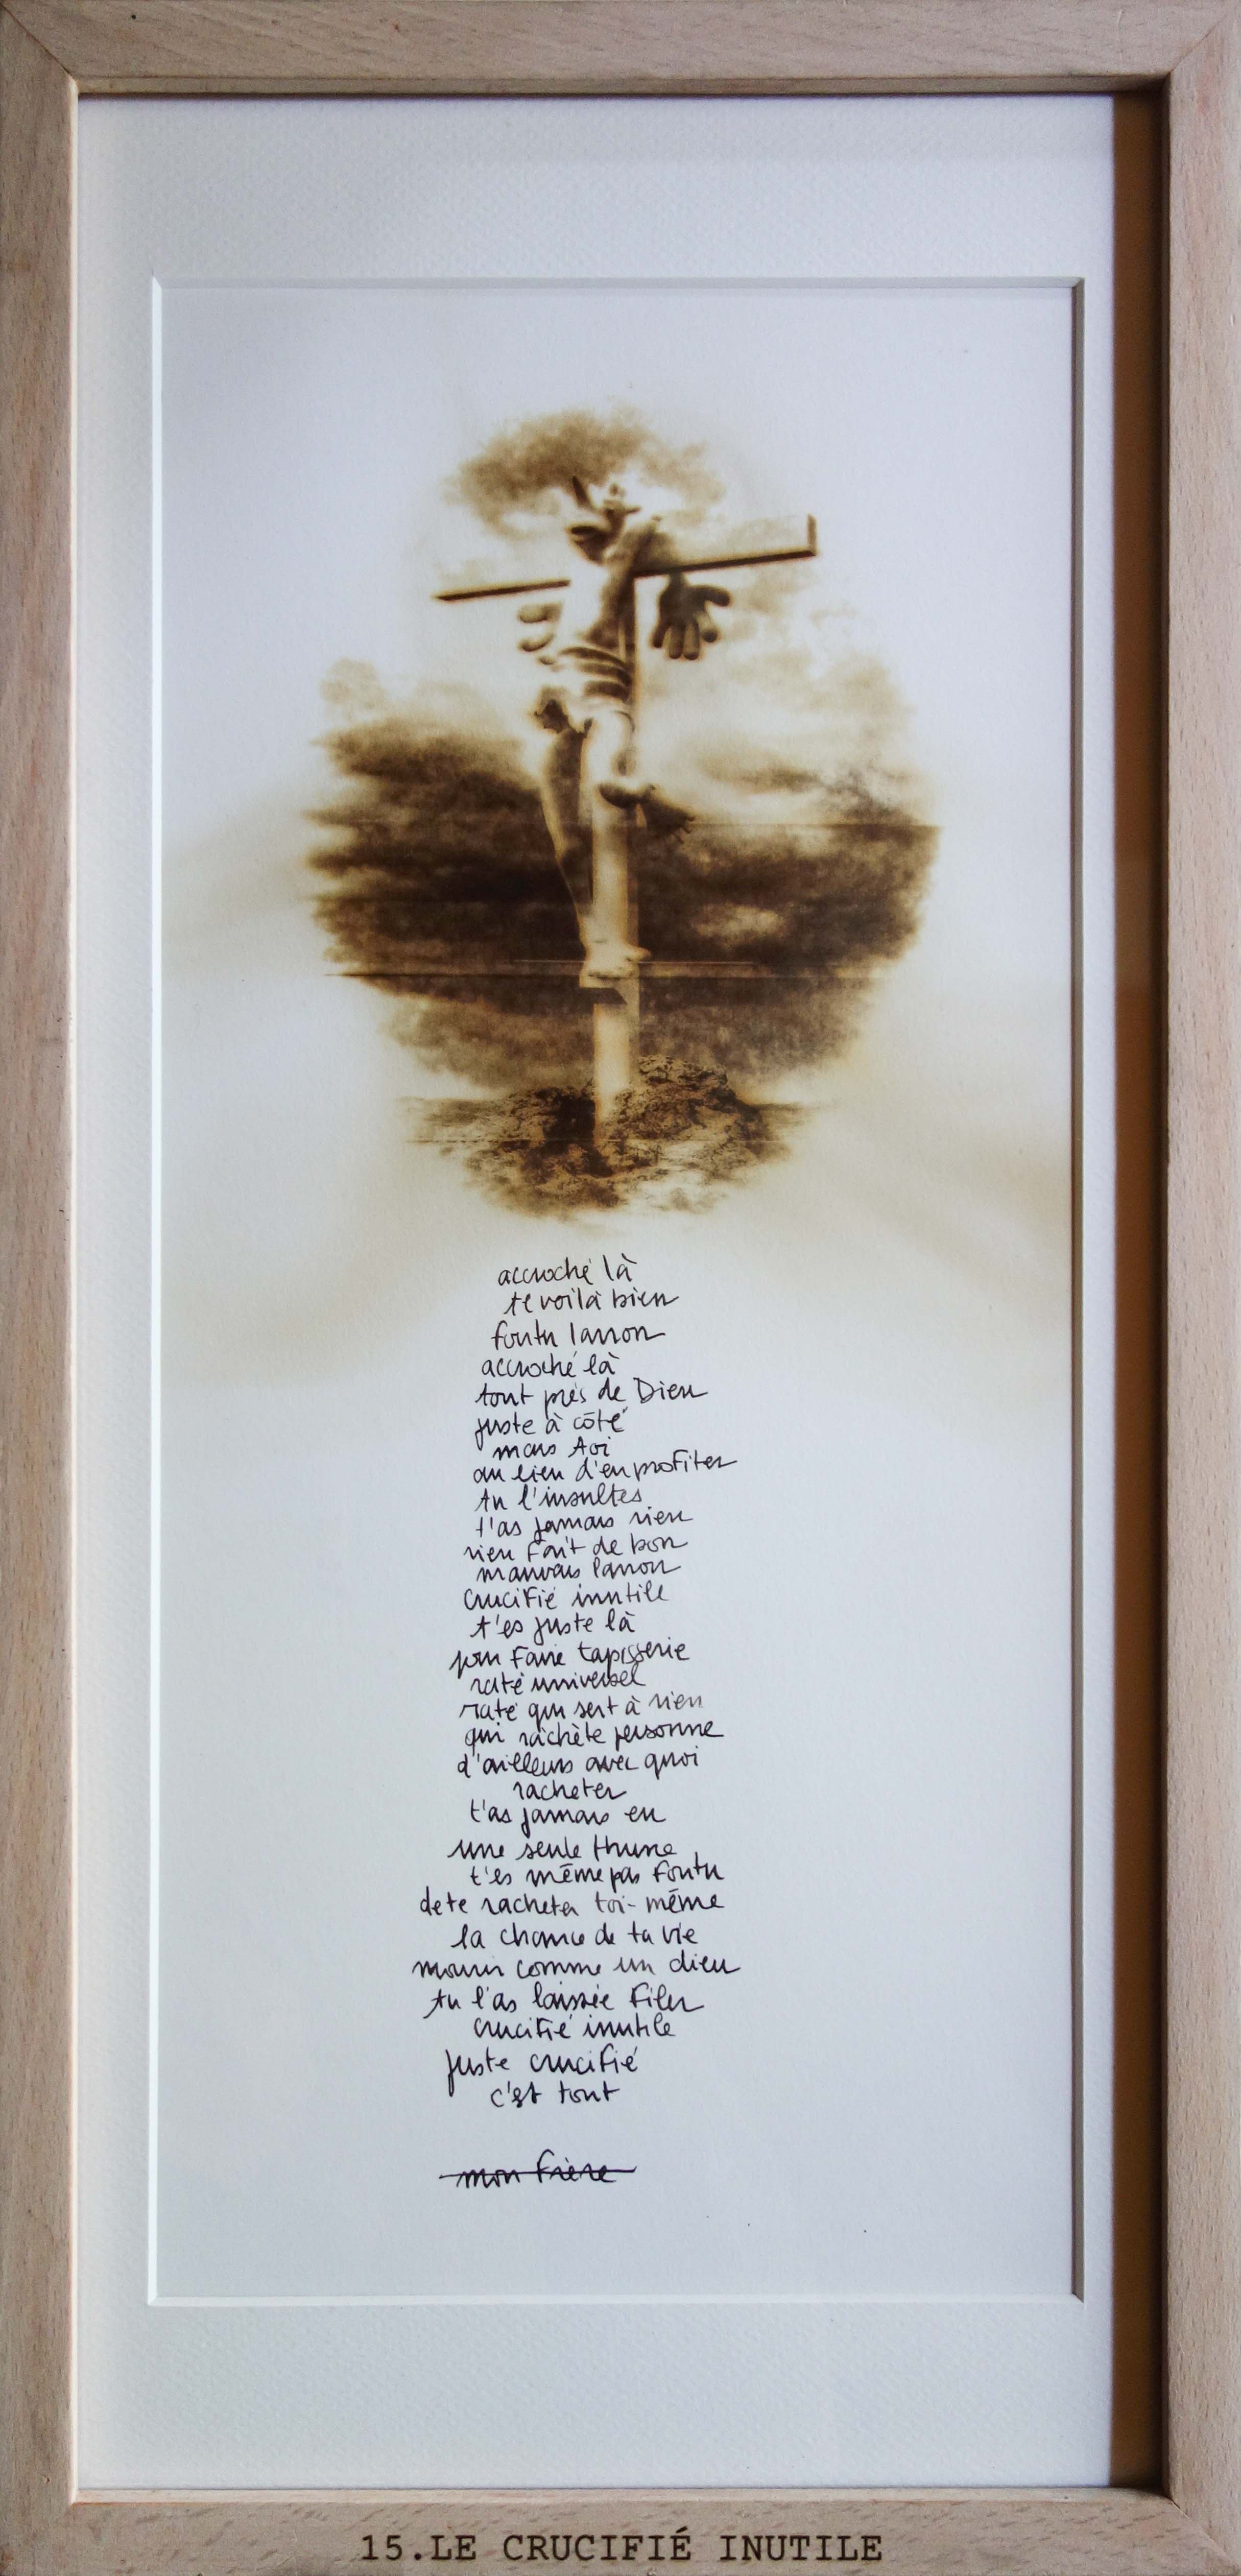 accroché là
te voilà bien
foutu larron
accroché là
tout près de Dieu
juste à côté
mais toi
au lieu d'en profiter
tu l'insultes
t'as jamais rien
rien fait de bon
mauvais larron
crucifié inutile
t'es juste là
pour faire tapisserie
raté universel
raté qui sert à rien
qui rachète personne
d'ailleurs avec quoi
racheter
t'as jamais eu
une seule thune
t'es même pas foutu
de te racheter toi-même
la chance de ta vie
mourir comme un dieu
tu l'as laissée filer
crucifié inutile
juste crucifié
c'est tout
mon frère
15.LE CRUCIFIÉ INUTILE